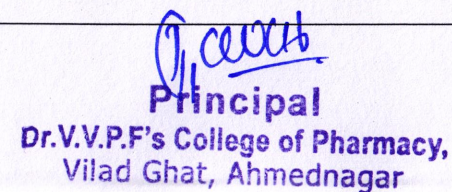 Principal
Dr.V.V.P.F's College of Pharmacy,
Vilad Ghat, Ahmednagar